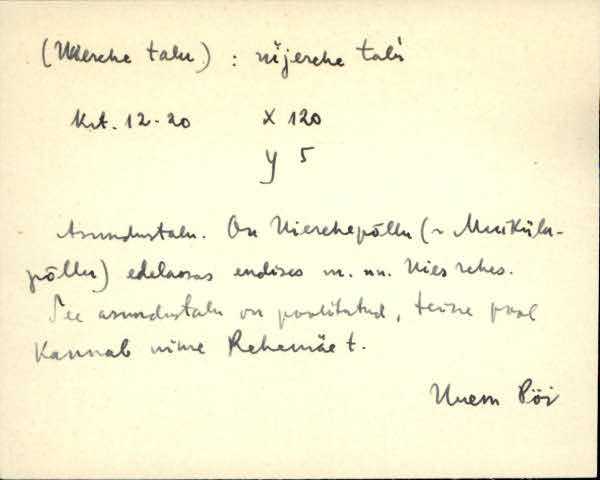 (Uierehe talu) : ūjerehe talù
Krt. 12-20 X 120
y 5
Asundustalu. On Uierehepõllu (~ Muuküla-
põllu) edelaosas endises m. nn. Uiesrehes.
See asundustalu on poolitatud, teine pool
kannab nime Rehemäe t.
Uuem Pöi